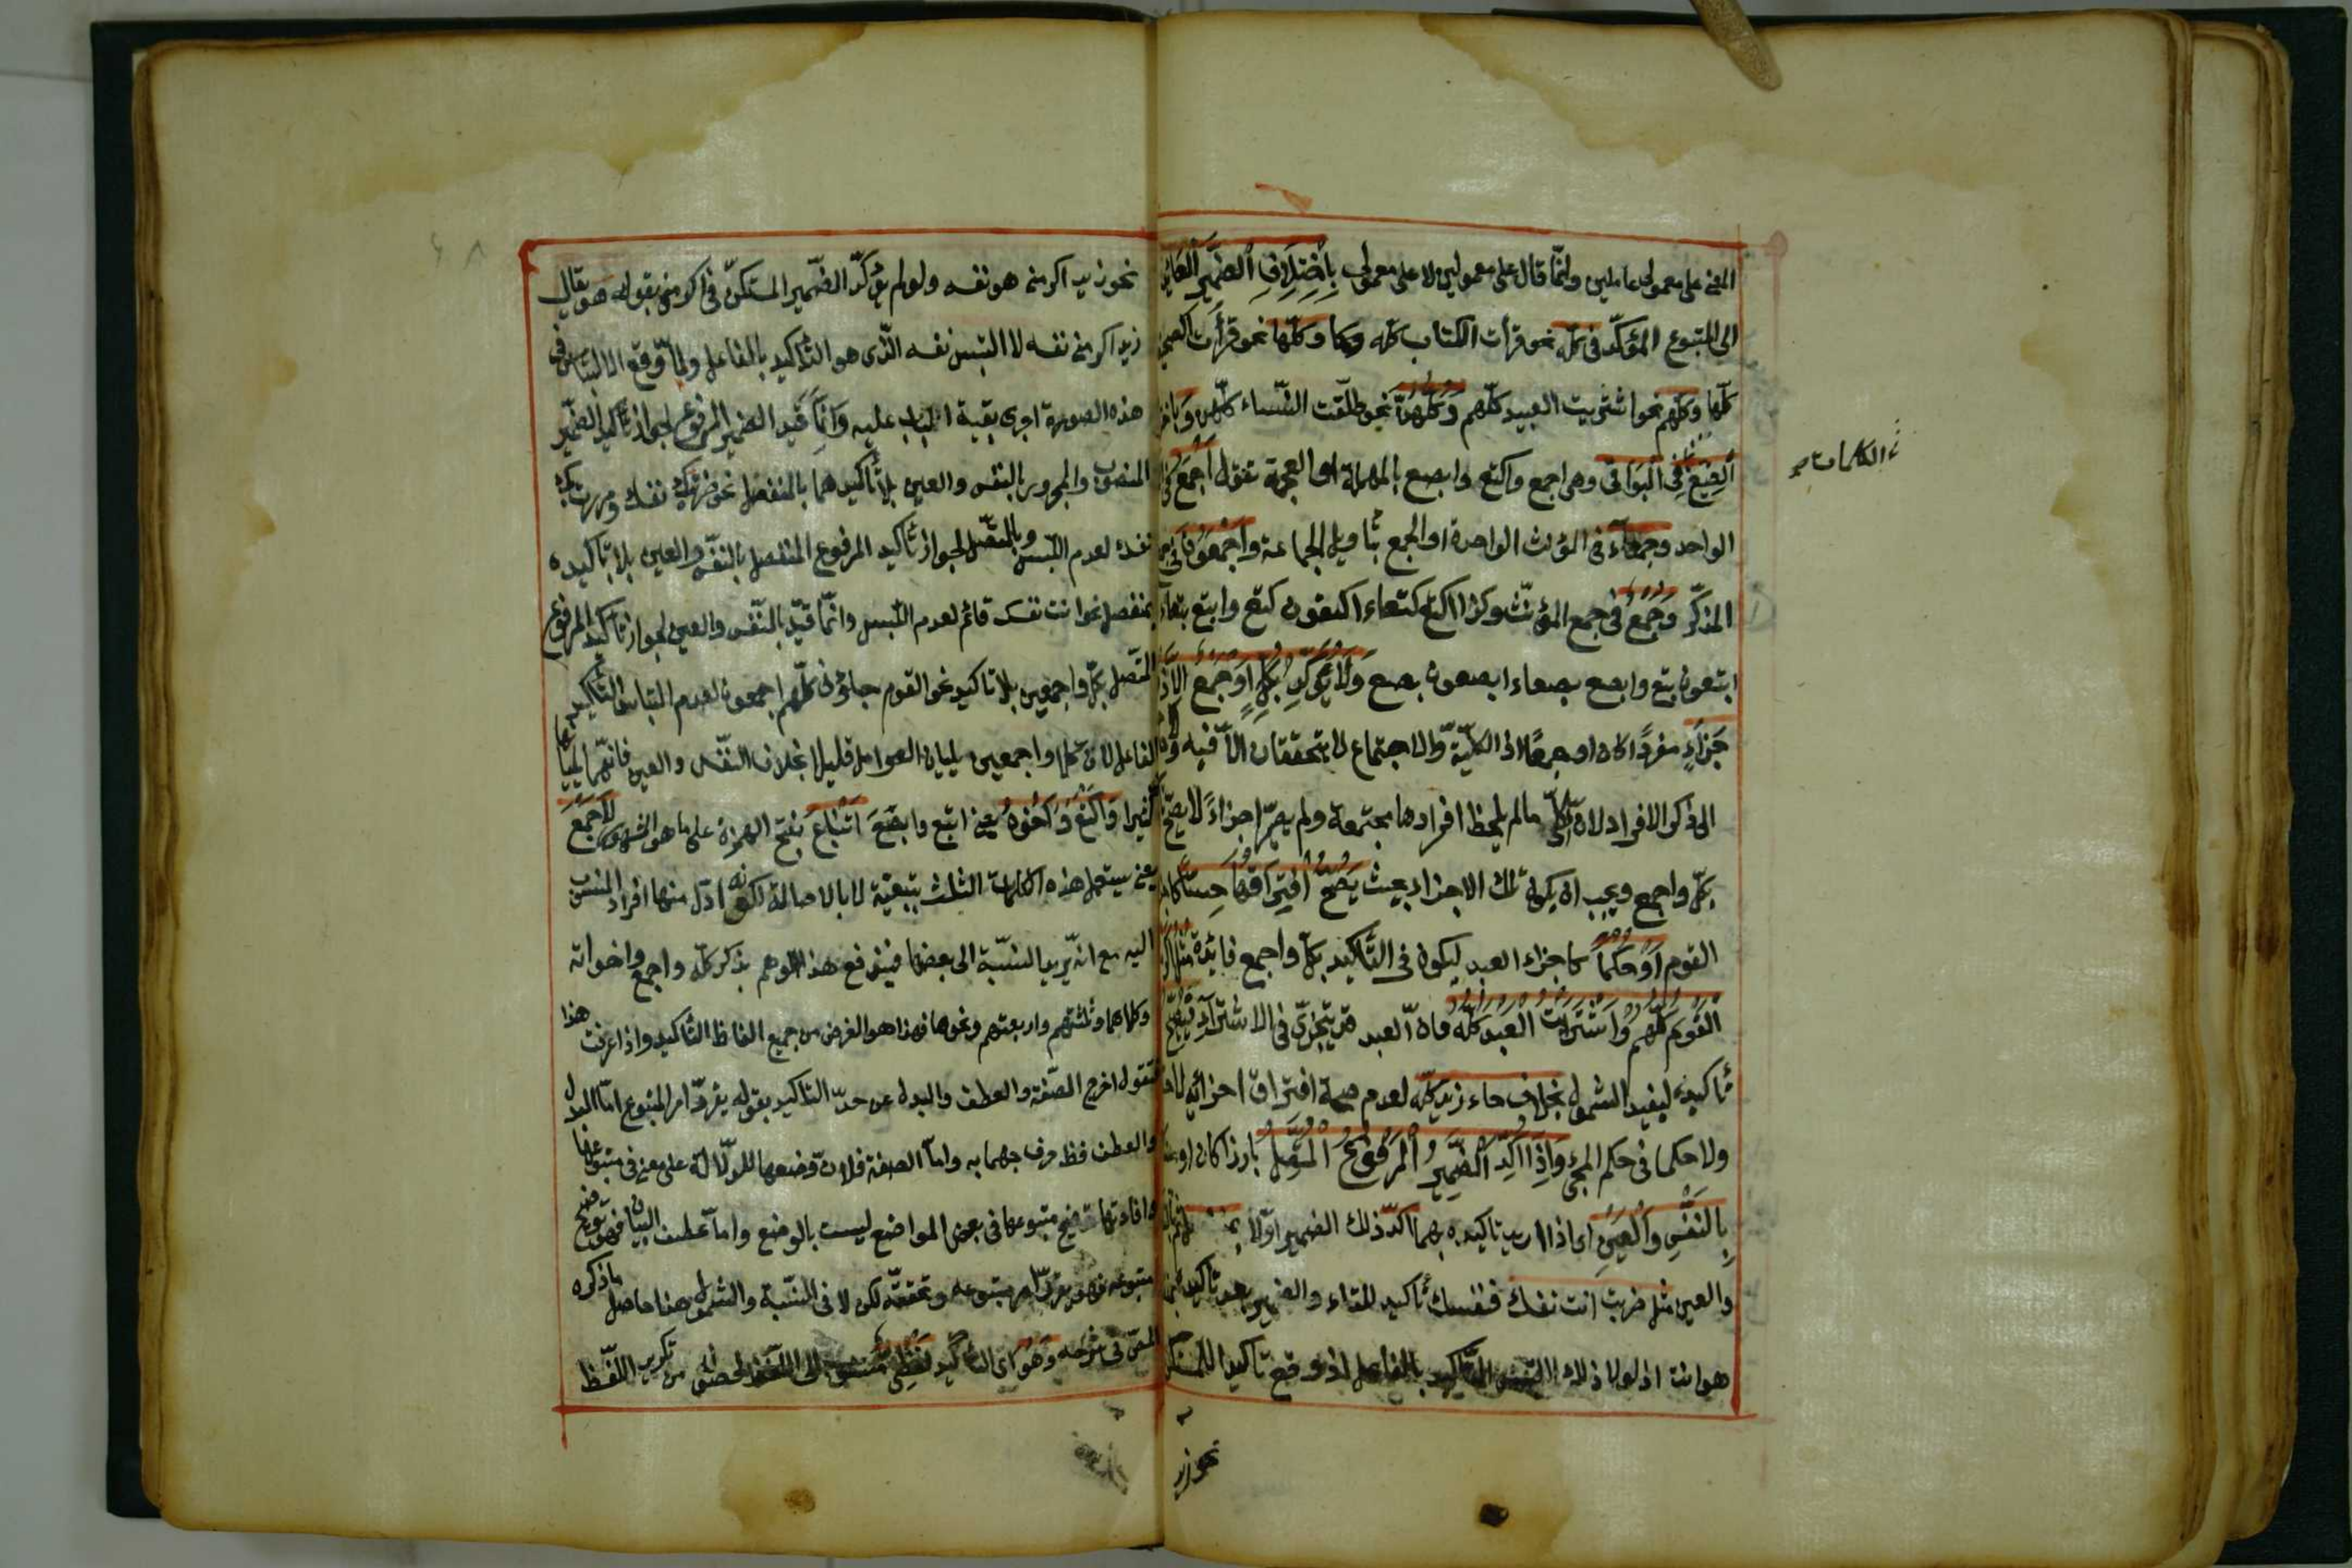 المعنى على معمولى عاملين وانّما قال على معمولين لا على معمولى بِاخْتِلَافِ الضَّمِيرِ الْعَائِدِ
الى المتبوع المؤكّد فى كلّه نحو قرأت الكتاب كلّه وكلّها نحو قرأت الصحيفة
كلّها وكلّهم نحو اشتريت العبيد كلّهم وَكُلّهنّ نحو طلّقت النّساء كلّهن
الصِّيَغِ فِى الْبَوَاقِى وهى اجمع واكتع وابتع وابصع بالمهملة او المعجمة تقول اجمع فى
الكلمات
الواحد وجمعاء فى المؤنث الواحدة او الجمع بتأويل الجماعة واجمعون فى جمع
المذكّر وَجُمَعُ فى جمع المؤنّث وكذا اكتع كتعاء اكتعون كتع وابتع بتعاء
ابتعون بتع وابصع بصعاء ابصعون بصع وَلَا يُؤَكَّدُ بِكُلٍّ وَاجْمَعَ اِلَّا ذُو
اَجْزَاءٍ مفردًا كان او جمعًا اذ الكلّيّة والاجتماع لا يتحققان الّا فيه ولا حاجة
الى ذكر الافراد لانّ الكلّى ما لم يلحظ افرادها مجتمعة ولم يصر اجزاءً لا يصحّ تأكيده
بكلّ واجمع ويجب ان يكون تلك الاجزاء بحيث يَصِحُّ افْتِرَاقُهَا حِسًّا كاجزاء
القوم اَوْ حُكْمًا كاجزاء العبد ليكون فى التّأكيد بكلّ واجمع فائدة مثل اكرمت
القَوْمَ كُلَّهُمْ وَاشْتَرَيْتُ الْعَبْدَ كُلَّهُ فانّ العبد قد يتجزّى فى الاشتراء فيصحّ
تأكيده ليفيد الشمول بخلاف جاء زيد كلّه لعدم صحة افتراق اجزائه لا حسّا
ولا حكما فى حكم المجئ وَاِذَا اُكِّدَ الضَّمِيرُ الْمَرْفُوعُ الْمُتَّصِلُ بارزا كان او مستكنّا
بِالنَّفْسِ وَالْعَيْنِ اى اذا اريد تأكيده بهما اكّد ذلك الضمير اوّلا بمنفصل ثم بالنفس
والعين مثل ضربت انت نفسك فنفسك تأكيد للتاء والضمير بعد تأكيده بمنفصل
هو انت اذ لولا ذلك لالتبس التّأكيد بالفاعل اذا وقع تأكيدا للمستكن
نحو زيد
نحو زيد اكرمنى هو نفسه ولو لم يؤكّد الضّمير المستكنّ فى اكرمنى بقوله هو ويقال
زيد اكرمنى نفسه لالتبس نفسه الّذى هو التّأكيد بالفاعل ولمّا وقع الالتباس فى
هذه الصورة اجرى بقية الباب عليه وانّما قيد الضّمير بالمرفوع لجواز تأكيد الضّمير
المنصوب والمجرور بالنّفس والعين بلا تأكيدهما بالمنفصل نحو ضربتك نفسك ومررت بك
نفسك لعدم اللّبس وبالمتّصل لجواز تأكيد المرفوع المنفصل بالنّفس والعين بلا تأكيده
بمنفصل نحو انت نفسك قائم لعدم اللّبس وانّما قيّد بالنّفس والعين لجواز تأكيد المرفوع
المتّصل بكلّ واجمعين بلا تأكيد نحو القوم جاؤنى كلّهم اجمعون لعدم التباس التّأكيد
بالفاعل لانّ كلّا واجمعين يليان العوامل قليلا بخلاف النّفس والعين فانّهما يليانها
كثيرا وَاَكْتَعُ وَاَخَوَاهُ يعنى ابتع وابصَعَ اَتْبَاعٌ بفتح الهمزة على ما هو المشهور لِاَجْمَعَ
يعنى يستعمل هذه الكلمات الثلث بتبعيّة لا بالاصالة لكونه ادلّ منها افراد المنسوب
اليه مع انّه يريد النّسبة الى بعضها فيندفع هذا التّوهم بذكر كلّه واجمع واخواته
وكلاهما وثلثتهم واربعتهم ونحوها فهذا هو الغرض من جميع الفاظ التّأكيد واذا عرفت هذا
فنقول اخرج الصّفة والعطف والبدل عن حدّ التّاكيد بقوله يقرّر امر المتبوع امّا البدل
والعطف فظ خروجهما به وامّا الصفة فلانّ وضعها للدّلالة على معنى فى متبوعها
وافادتها توضيح متبوعها فى بعض المواضع ليست بالوضع وامّا عطف البيان فهو لتوضيح
متبوعه فهو يقرّر امر متبوعه وتحقّقه لكن لا فى النّسبة والشّمول هذا حاصل ما ذكره
المصّ فى شرحه وَهُوَ اى التّأكيد لَفْظِىٌّ منسوب الى اللّفظ لحصوله من تكرير اللّفظ